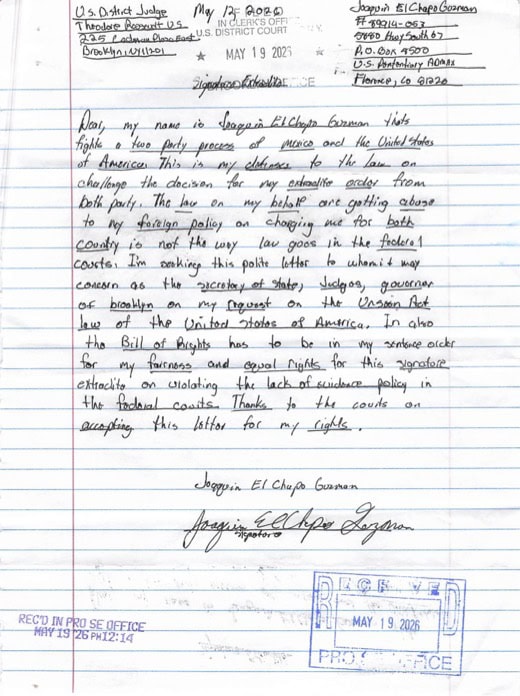 U.S. District Judge
Theodore Roosevelt U.S.
225 Cadman Plaza East
Brooklyn, NY 11201
May 12, 2026
IN CLERK'S OFFICE
U.S. DISTRICT COURT
★ MAY 19 2026 ★
Joaquin El Chapo Guzman
# 89914-053
5880 Hwy South 67
P.O. Box 8500
U.S. Penitentiary ADMAX
Florence, CO 81226
Signature Extradite
Dear, my name is Joaquin El Chapo Guzman thats
fights a two party process of mexico and the United States
of America. This is my defenses to the law on
challenge the decision for my extradite order from
both party. The law on my behalf are getting abuse
to my foreign policy on charging me for both
country is not the way law goes in the federal
courts. I'm seeking this polite letter to whom it may
concern as the secretary of state, Judges, governor
of brooklyn on my request on the Act
law of the United States of America. In also
the Bill of Rights has to be in my sentence order
for my fairness and equal rights for this signature
extradite on violating the lack of evidence policy in
the federal courts. Thanks to the courts on
accepting this letter for my rights.
Joaquin El Chapo Guzman
Joaquin El Chapo Guzman
signature
REC'D IN PRO SE OFFICE
MAY 19 '26 PM 12:14
RECEIVED
MAY 19 2026
PRO SE OFFICE